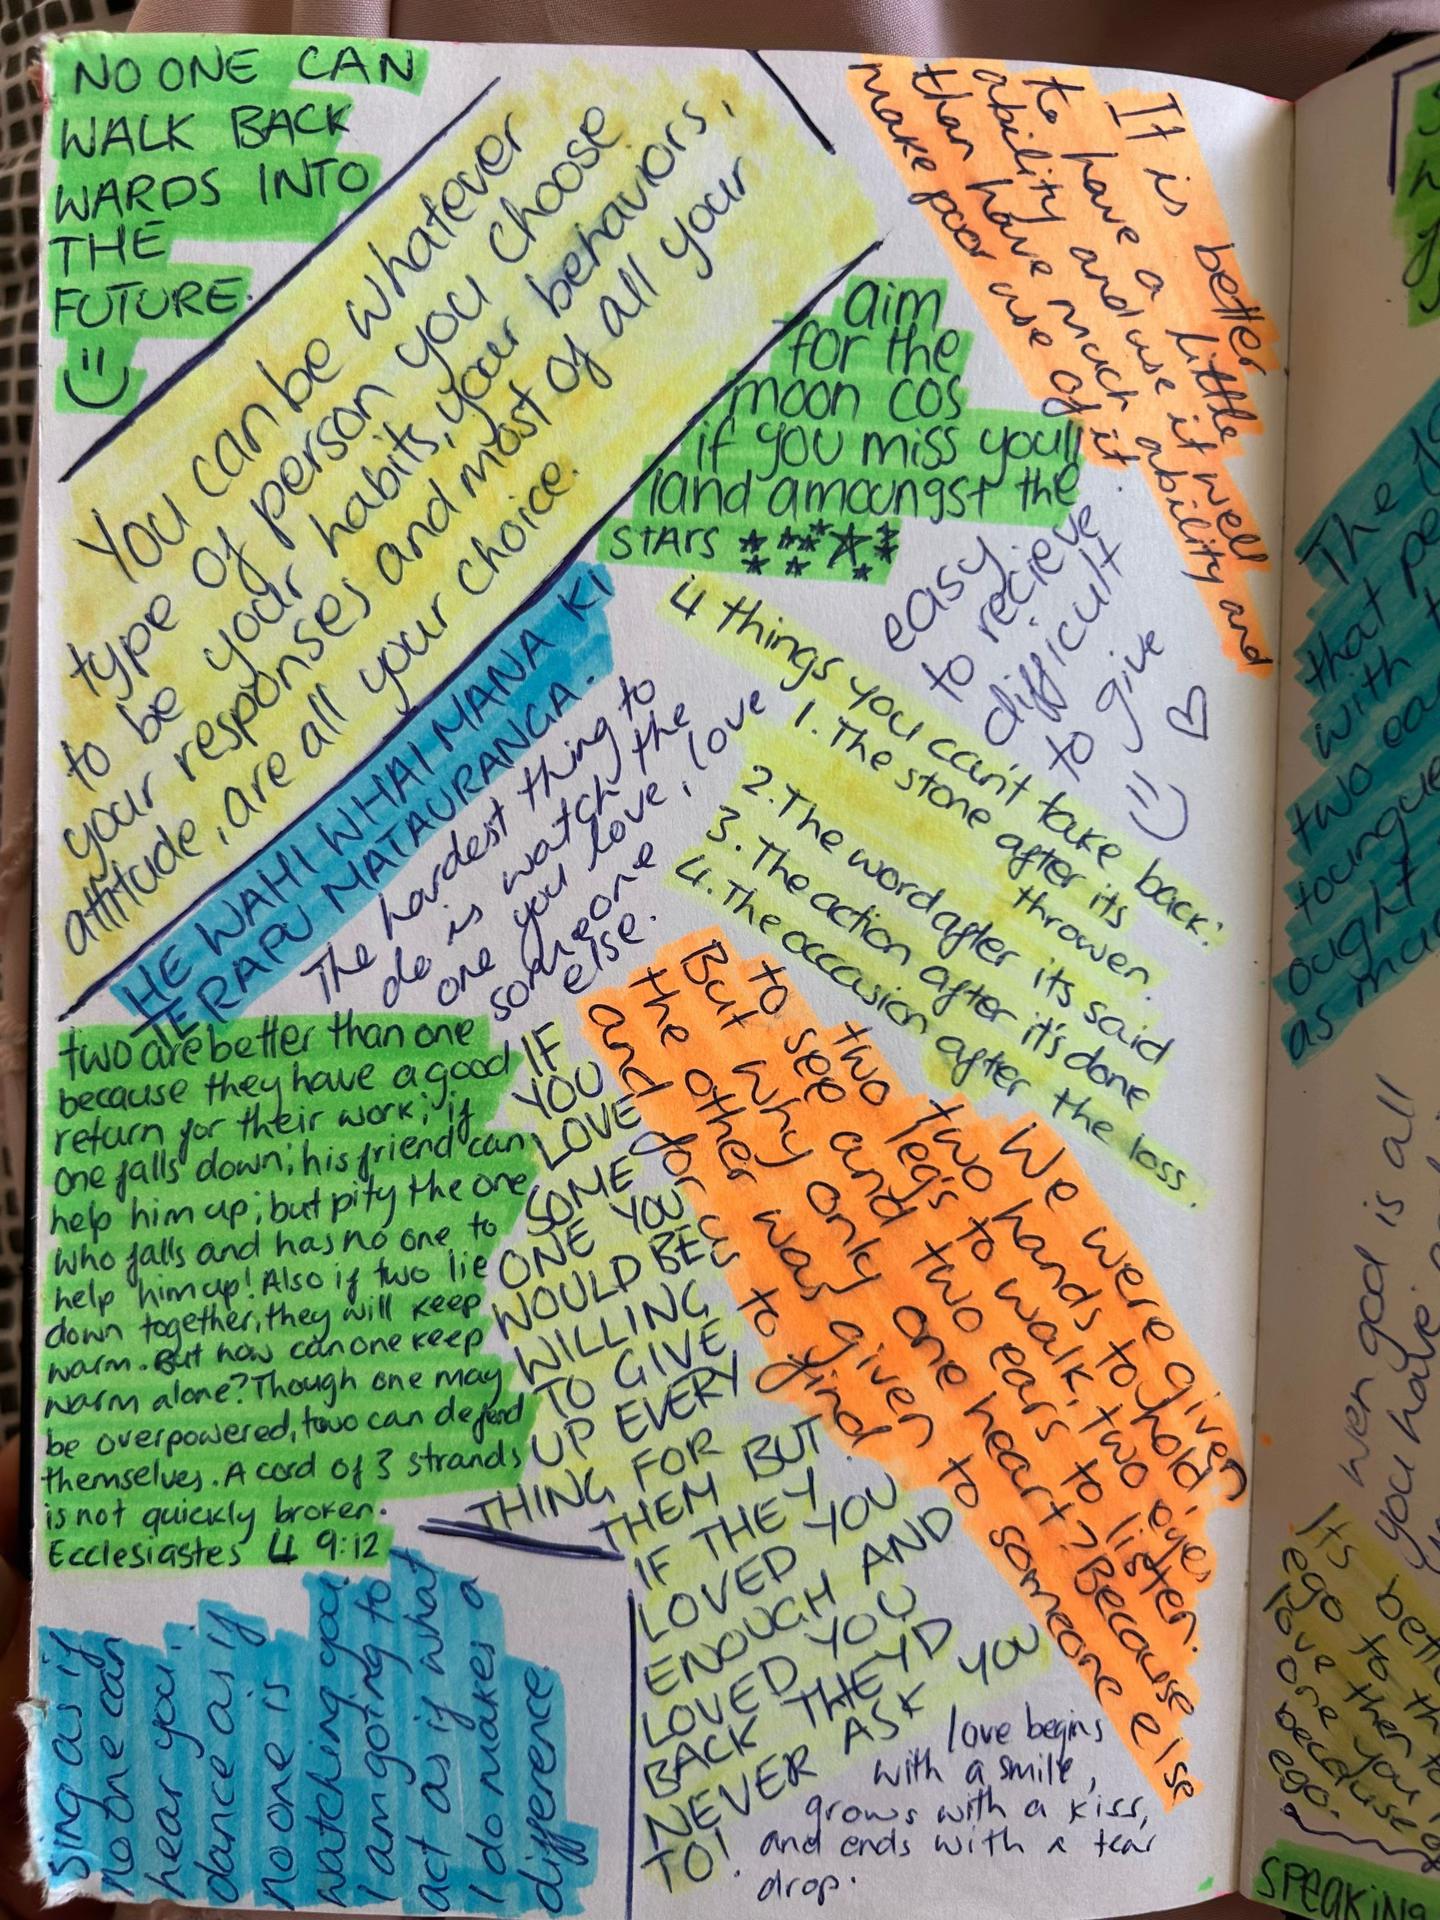 NO ONE CAN
WALK BACK
WARDS INTO
THE
FUTURE.
You can be whatever
type of person you choose
to be your habits, your behaviors,
your responses and most of all your
attitude, are all your choice.
It is better
to have a little
ability and use it well
than have much ability and
make poor use of it.
aim
for the
moon cos
if you miss youll
land amoungst the
STARS
easy
to recieve
difficult
to give
HE WAHI WHAI MANA KI
TE RAPU MATAURANGA.
The hardest thing to
do is watch the
one you love, love
someone
else.
4 things you can't take back:
1. The stone after its
throwen.
2. The word after its said
3. The action after it's done
4. The occasion after the loss.
two are better than one
because they have a good
return for their work; if
one falls down; his friend can
help him up; but pity the one
who falls and has no one to
help him up! Also if two lie
down together, they will keep
warm. But how can one keep
warm alone? Though one may
be overpowered, two can defend
themselves. A cord of 3 strands
is not quickly broken.
Ecclesiastes 4 9:12
IF
YOU
LOVE
SOME
ONE YOU
WOULD BE
WILLING
TO GIVE
UP EVERY
THING FOR
THEM BUT
IF THEY
LOVED YOU
ENOUGH AND
LOVED YOU
BACK THEYD
NEVER ASK YOU
TO!
We were given
two hands to hold,
two legs to walk, two eyes
to see and two ears to listen.
But why only one heart? Because
the other was given to someone else
and for us to find
Sing as if
no one can
hear you.
dance as if
no one is
watching you.
I am going to
act as if what
I do makes a
difference.
love begins
with a smile,
grows with a kiss,
and ends with a tear
drop.
The
that
with
two
toungue
ought
as
wen god is all
you have,
Its
ego to
love then
one you
because
ego.
SPEAKING